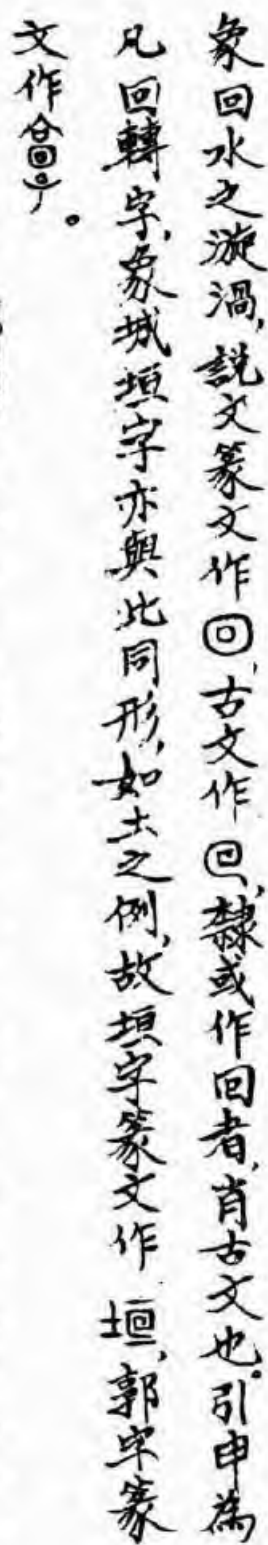 象回水之漩渦，説文篆文作回，古文作囘，隸或作回者，肖古文也。引申為
凡回轉字，象城垣字亦與此同形，如土之例，故垣字篆文作垣，郭字篆
文作。